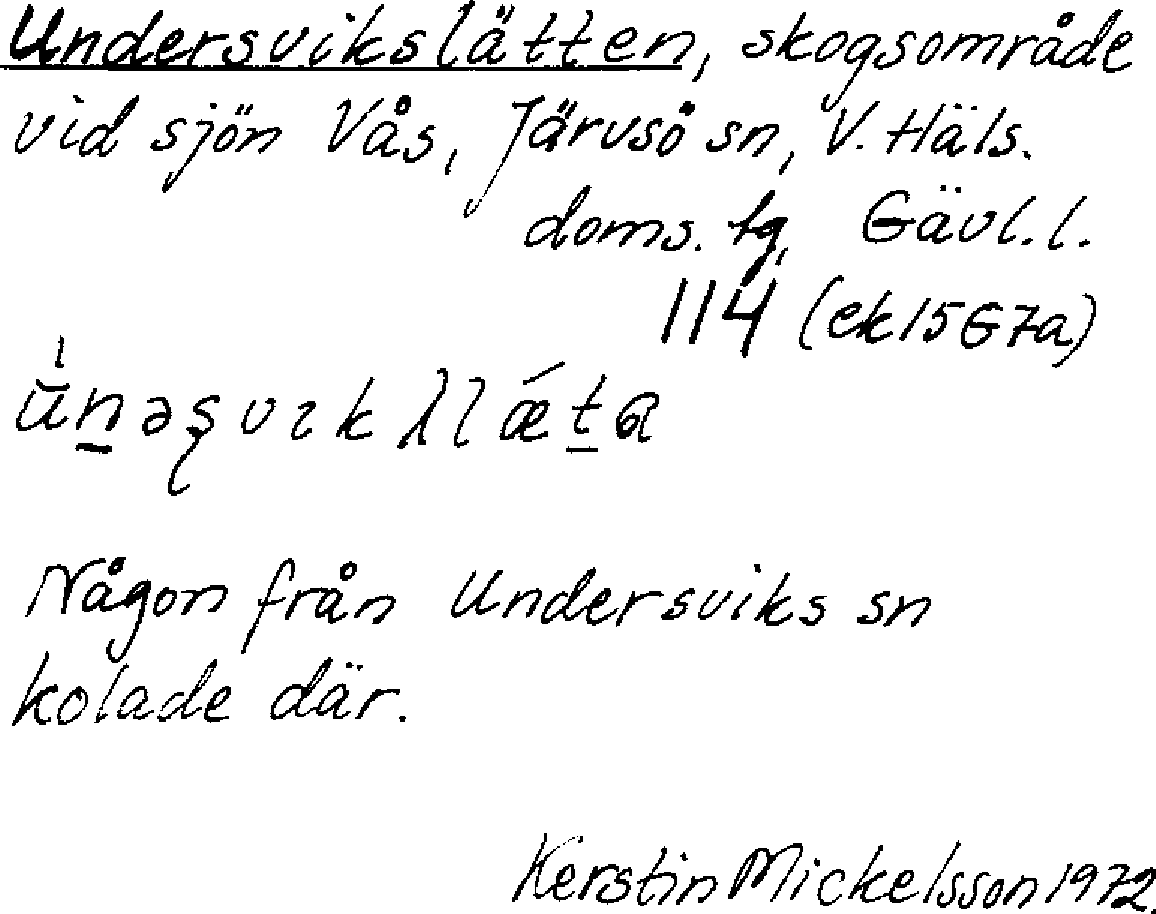 Undersvikslätten, skogsområde
vid sjön Vås, Järvsö sn, V. Häls.
doms. tg, Gävl. l.
114 (ek 15G7a)
Någon från Undersviks sn
kolade där.
Kerstin Mickelsson 1972.